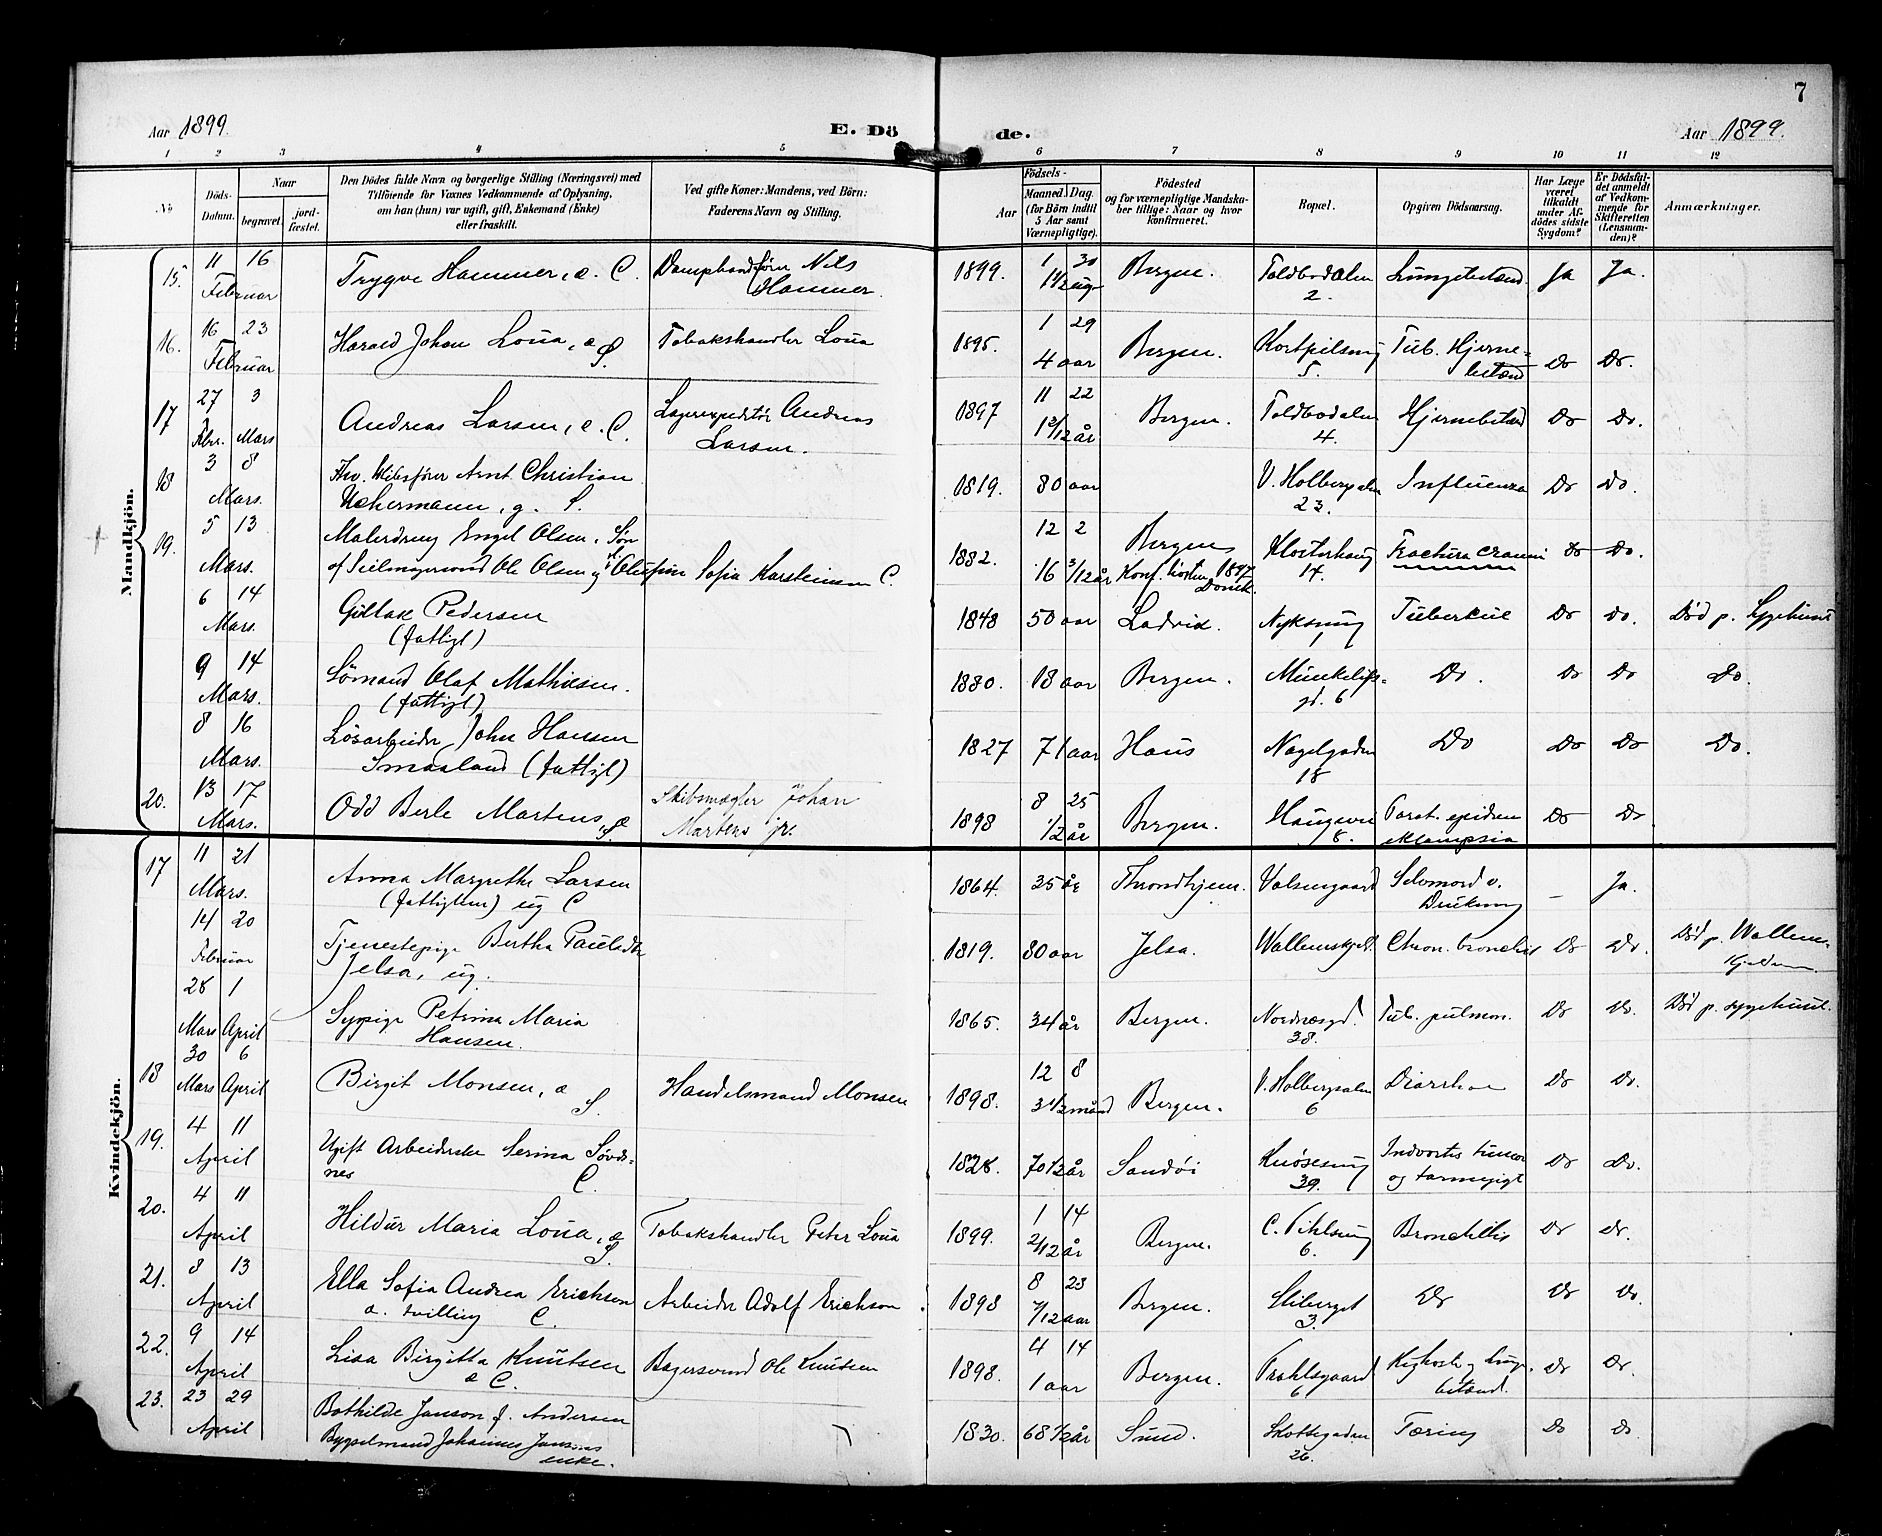 7
Aar 1899.
E. Dö de.
Aar 1899.
1 2 3 4 5 6 7 8 9 10 11 12
No
Döds-
Datum.
Naar
begravet.
jord-
fæstet.
Den Dödes fulde Navn og borgerlige Stilling (Næringsvei) med
Tilföiende for Voxnes Vedkommende af Oplysning,
om han (hun) var ugift, gift, Enkemand (Enke)
eller fraskilt.
Ved gifte Koner: Mandens, ved Börn:
Faderens Navn og Stilling.
Födsels-
Aar
Maaned. Dag.
(for Börn indtil
5 Aar samt
Værnepligtige).
Födested
og for værnepligtige Mandska-
ber tillige: Naar og hvor
konfirmeret.
Bopæl.
Opgiven Dödsaarsag.
Har Læge
været
tilkaldt
under Af-
dödes sidste
Sygdom?
Er Dödsfal-
det anmeldt
af Vedkom-
mende for
Skifteretten
(Lensman-
den)?
Anmærkninger.
Mandkjön.
15. 11 16 Trygve Hammer, æ. C. Dampbaadfører Nils 1899. 1 30 Bergen. Toldbodalm Lungebetænd. Ja Ja.
Februar Hammer. 1 1/2 uge 2.
16. 16 23 Harald Johan Loua, æ Tobakshandler Loua 1895. 1 29 Bergen. Kortpilsmug Tub. Hjerne-
Februar S. 4 aar 5. betænd Do Do.
17 27 3 Andreas Larsen, æ. C. Lagerexpeditør Andreas 1897 11 22 Bergen. Toldbodalm Hjernebetænd Do Do.
Febr. Mars Larsen. 1 3/12 år 4.
18 3 8 Fhv. Skibsfører Arnt Christian 1819. 80 aar V. Holbergsalm Influenza Do Do.
Mars. Uchermann, g. S. 23.
19. 5 13 Malerdreng Engel Olsen, Søn 1882. 12 2 Bergen Klosterhaug Fractura cranii Do Do.
Mars. af Seilmagersvend Ole Olsen og Olufine Sofie Karsteinsen C. 16 3/12 år Konf. hosten 1897 14.
Domk.
6 14 Gullak Pedersen 1848 50 aar Ladvik. Nyksmug Tuberkul Do Do. Død p. Sygehuset
Mars. (fattigl) 1
9 14 Sømand Olaf Mathiesen. 1880. 18 aar Bergen. Munkelifs- Do. Do Do Do.
Mars. (fattigl) gd. 6
8 16 Løsarbeider John Hansen 1827 71 aar Haus Nagelgaden Do Do Do Do.
Mars. Smaaland (fattigl) 18
20. 13 17 Odd Berle Martens, æ Skibsmægler Johan 1898 8 25 Bergen. Haugevei Parot. epidem Do Do
Mars. S. Martens jr. 1/2 år 8. eklampsia
Kvindekjön.
17 11 21 Anna Margrethe Larsen 1864. 35 år Throndhjem. Valsengaard Selvmord v. – Ja.
Mars. (fattiglem) ug C Drukning
14 20 Tjenestepige Bertha Paulsdtr 1819. 80 aar Jelsa. Wallemskjeld. Chron. bronchitis Do Do. Død p. Wallem-
Februar Jelsa, ug. kjelderen
28 1 Sypige Petrina Maria 1865. 34 år Bergen. Nordnæsgd. Tub. pulmon. Do Do. Død p. Sygehuset.
Mars April Hansen. 38.
18 30 6 Birgit Monsen, æ Handelsmand Monsen 1898. 12 8 Bergen. V. Holbergsalm Diarrhoe Do Do.
Mars April S. 3 1/2 månd 6
19. 4 11 Ugift Arbeiderske Serina Søvds- 1828. 70 1/2 år Sandøi Knøsesmug Indvortis tumor Do Do.
April nes C. 39. og tarmegigt
20. 4 11 Hildur Maria Loua, æ Tobakshandler Peter Loua 1899. 1 14 Bergen. C. Pihlsmug Bronchitis Do Do.
April S. 2/12 år 6.
21. 8 13 Ella Sofia Andrea Erichson Arbeider Adolf Erichson 1898 8 23 Bergen. Skiberget Do Do Do.
April æ. tvilling C. 7/12 aar 3.
22. 9 14 Lisa Birgitta Knutsen Bagersvend Ole Knutsen 1898. 4 14 Bergen. Prahlsgaard Kighoste og Lunge- Do Do.
April æ C. 1 aar 6 betænd.
23. 23 29 Bothilde Janson f. Andersen 1830. 68 1/2 år Sund. Skottegaden Tæring Do Do
April Bygselmand Johannes Jansons 26.
enke.